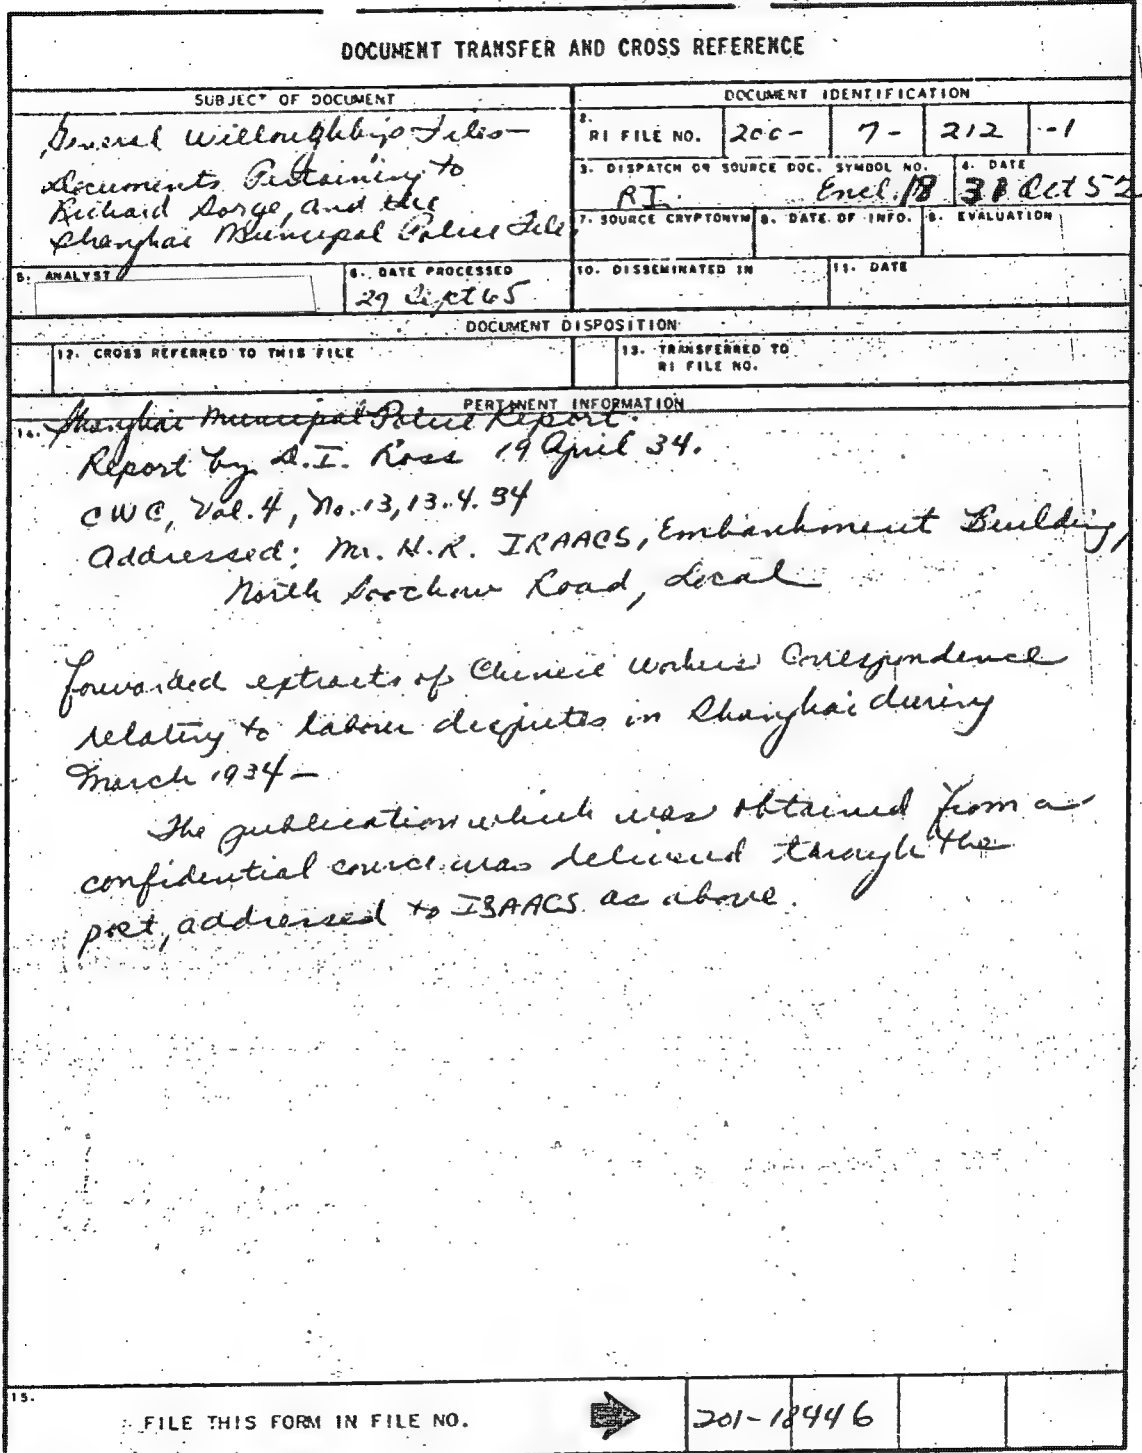 DOCUMENT TRANSFER AND CROSS REFERENCE
SUBJECT OF DOCUMENT
General Willoughby's Files—
Documents Pertaining to
Richard Sorge, and the
Shanghai Municipal Police File
DOCUMENT IDENTIFICATION
2. RI FILE NO. 200- 7- 212 -1
3. DISPATCH OR SOURCE DOC. SYMBOL NO.
RI. Encl. 18
4. DATE
31 Oct 52
7. SOURCE CRYPTONYM
8. DATE OF INFO.
9. EVALUATION
5. ANALYST
6. DATE PROCESSED
29 Sept 65
10. DISSEMINATED IN
11. DATE
DOCUMENT DISPOSITION
12. CROSS REFERRED TO THIS FILE
13. TRANSFERRED TO
RI FILE NO.
PERTINENT INFORMATION
14. Shanghai Municipal Police Report.
Report by D.I. Ross 19 April 34.
CWC, Vol. 4, No. 13, 13.4.34
Addressed: Mr. H.R. ISAACS, Embankment Building,
North Soochow Road, Local
forwarded extracts of Chinese Workers Correspondence
relating to labour disputes in Shanghai during
March 1934—
The publication which was obtained from a
confidential source was delivered through the
post, addressed to ISAACS as above.
15.
FILE THIS FORM IN FILE NO. 201-18446